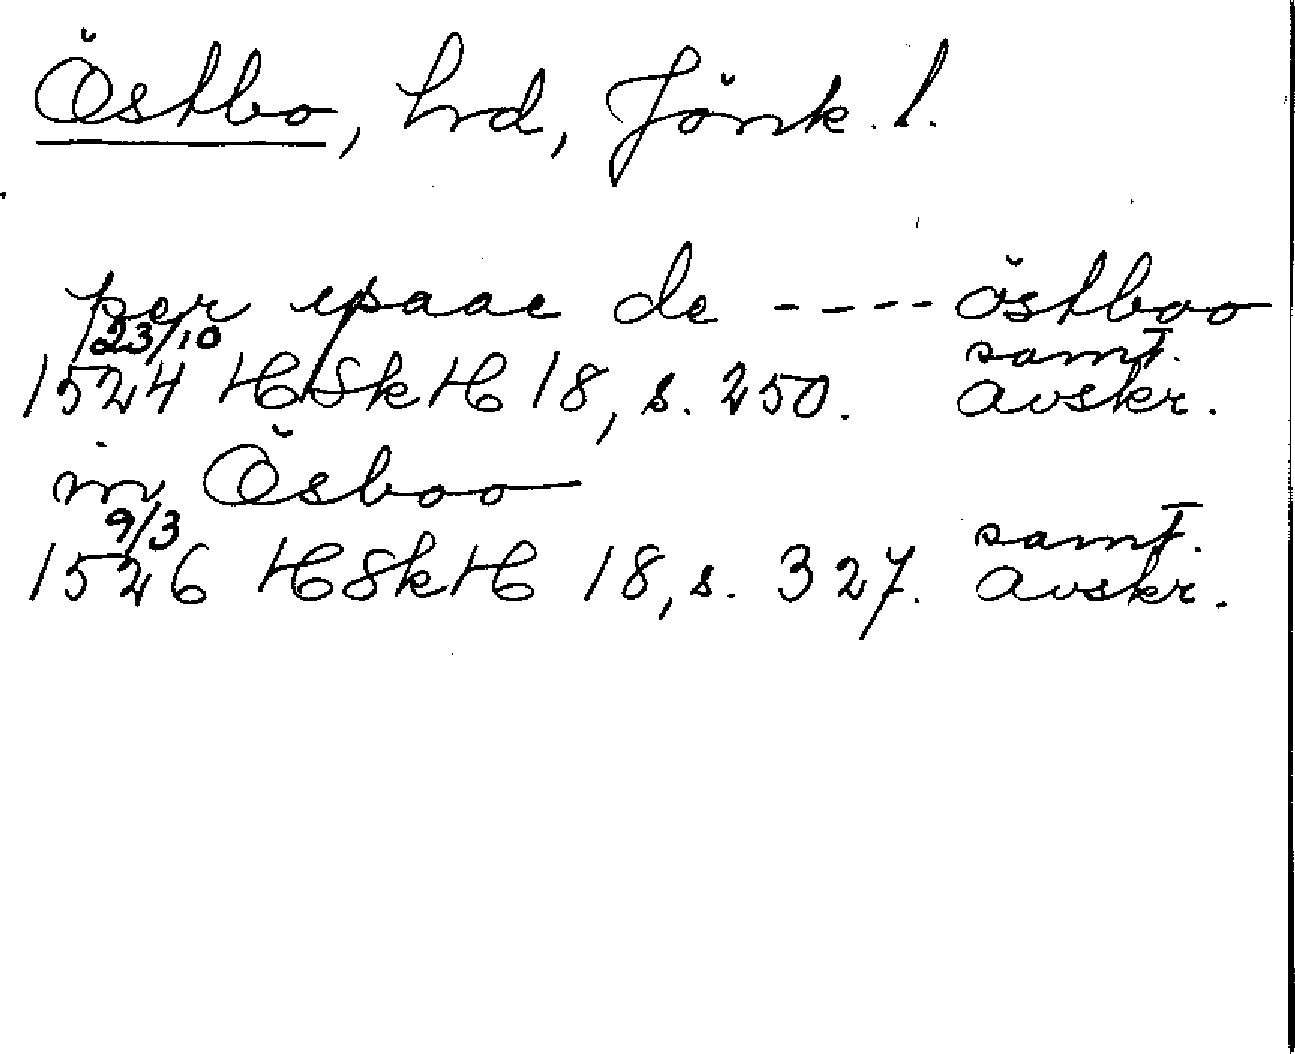 Östbo, hrd, Jönk. l.
per ysaac de ---- östboo
23/10 samt.
1524 HSkH 18, s. 250. avskr.
in Ösboo
9/3 samt.
1526 HSkH 18, s. 327. avskr.